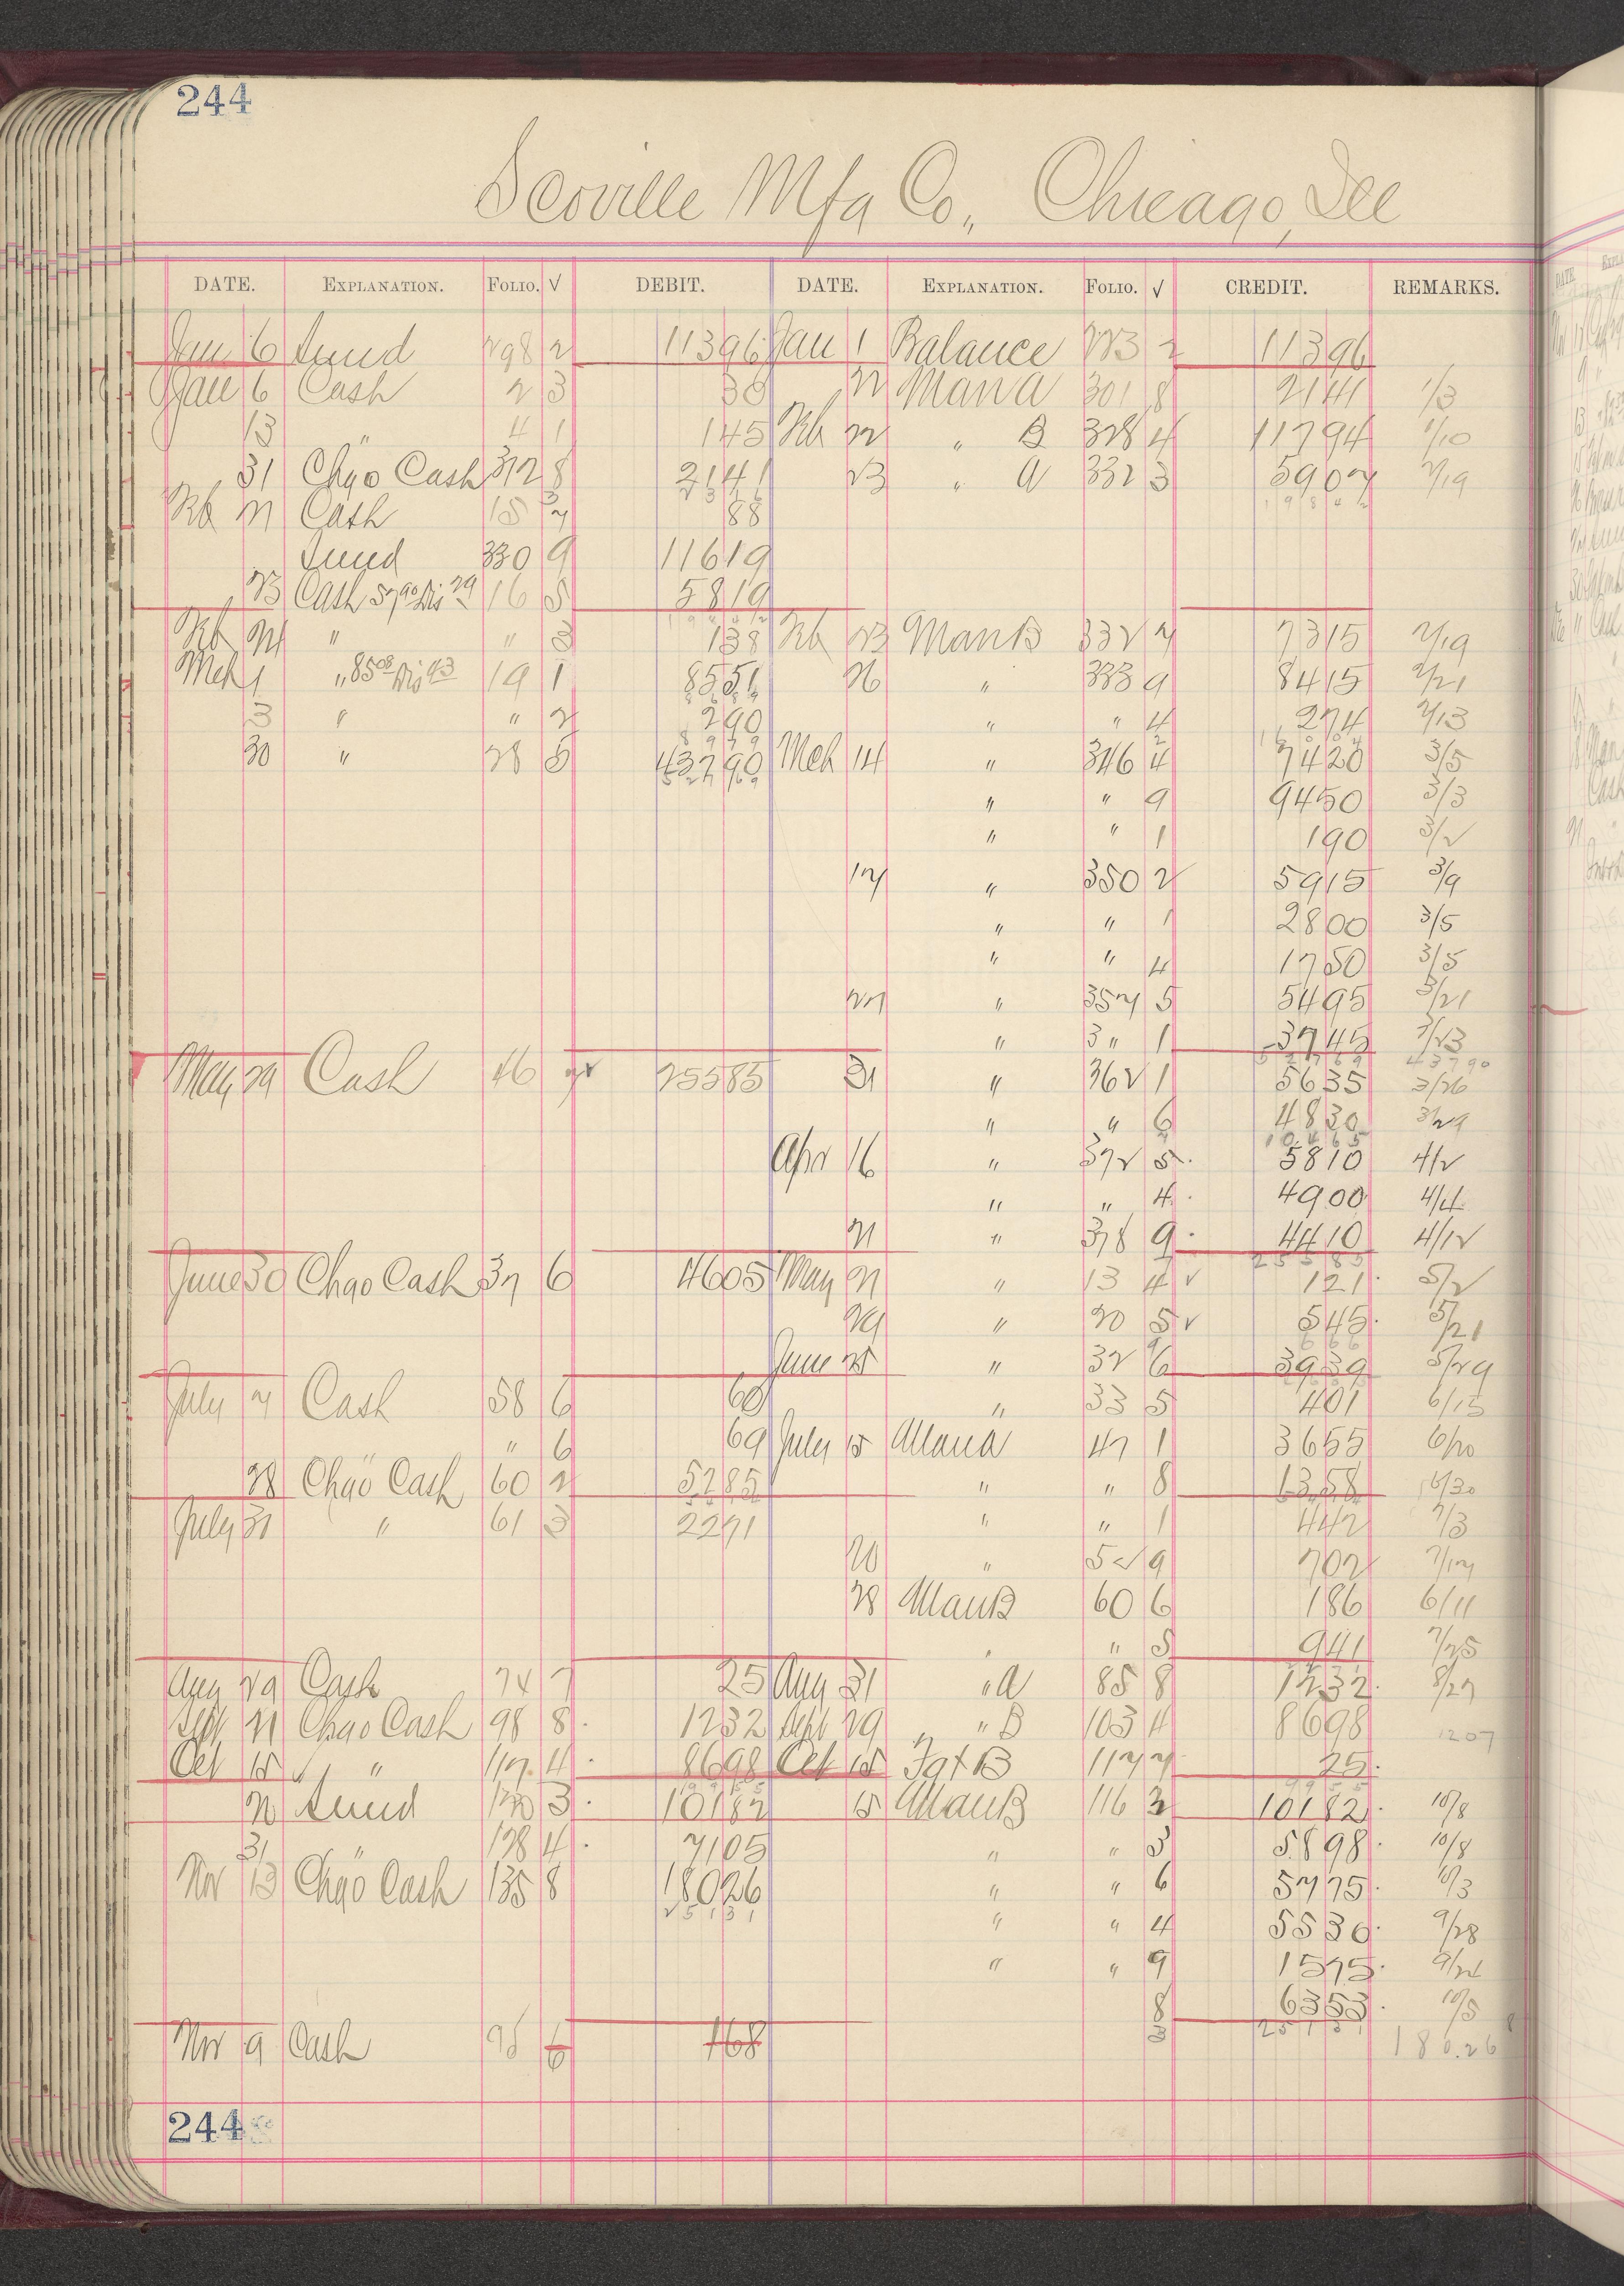 244
Scoville Mfg Co., Chicago, Ill
DATE. EXPLANATION. FOLIO. √ DEBIT. DATE. EXPLANATION. FOLIO. √ CREDIT. REMARKS.
Jan 6 Sund 298 2 11396 Jan 1 Balance 223 2 11396
Jan 6 Cash 2 3 38 22 Man A 301 8 2141 1/3
13 " 4 1 145 Feb 22 " B 328 4 11794 1/10
31 Chgo Cash 312 8 2141 23 " A 332 3 5907 2/19
Feb 21 Cash 15 7 88
Sund 330 9 11619
23 Cash 57 90 Dis 29 16 5 5819
Feb 24 " " 3 138 Feb 23 Man B 332 7 7315 2/19
Mch 1 " 85 08 Dis 43 19 1 8551 26 " 333 9 8415 2/21
3 " " 2 290 " " 4 274 2/13
30 " 28 5 43790 Mch 14 " 346 4 7420 3/5
" " 9 9450 3/3
" " 1 190 3/2
17 " 350 2 5915 3/9
" " 1 2800 3/5
" " 4 1750 3/5
27 " 357 5 5495 3/21
" 3 " 1 3745 3/23
52769 43790
May 29 Cash 46 72 25585 31 " 362 1 5635 3/26
" " 6 4830 3/29
10465
Apr 16 " 372 5 5810 4/2
" " 4 4900 4/4
21 " 378 9 4410 4/12
25585
June 30 Chgo Cash 37 6 4605 May 21 " 13 4 √ 121 5/2
29 " 20 5 √ 545 5/21
666
June 25 " 32 6 3939 5/29
July 7 Cash 58 6 60 " 33 5 401 6/15
" " 6 69 July 15 Man A 47 1 3655 6/20
28 Chgo Cash 60 2 5285 " " 8 1358 6/30
July 31 " 61 3 2271 " " 1 442 7/3
20 " 52 9 702 7/17
28 Man B 60 6 186 6/11
" " 5 941 7/25
Aug 29 Cash 74 7 25 Aug 31 " A 85 8 1232 8/27
Sept 21 Chgo Cash 98 8 1232 Sept 29 " B 103 4 8698 1207
Oct 15 " " 117 4 8698 Oct 15 Fgt B 117 7 25
9955 9955
20 Sund 120 3 10182 15 Man B 116 3 10182 10/8
31 " 128 4 7105 " " 3 5898 10/8
Nov 13 Chgo Cash 135 8 18026 " " 6 5775 10/3
25131 " " 4 5530 9/28
" " 9 1575 9/24
8 6353 10/5
25131
Nov 9 Cash 95 6 168 18026
244